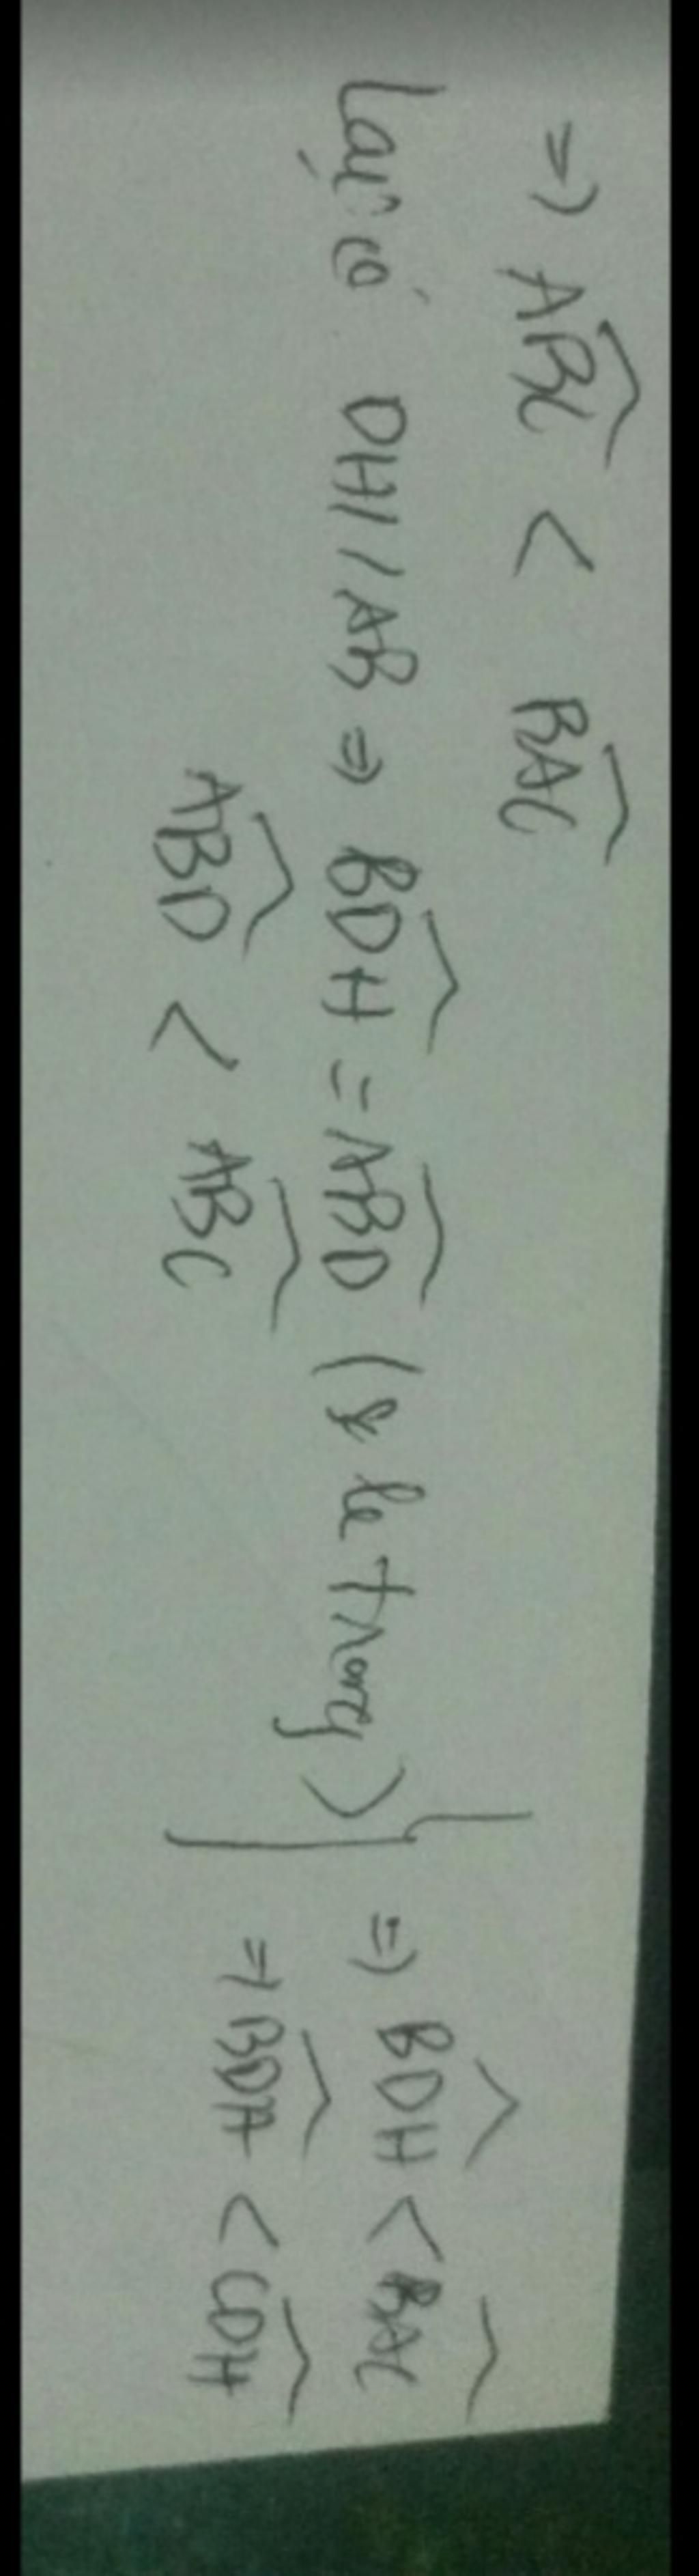 => ABC < BAC
Lại có DH//AB => BDH = ABD (so le trong) => BDH < BAC
ABD < ABC => BDH < CDH